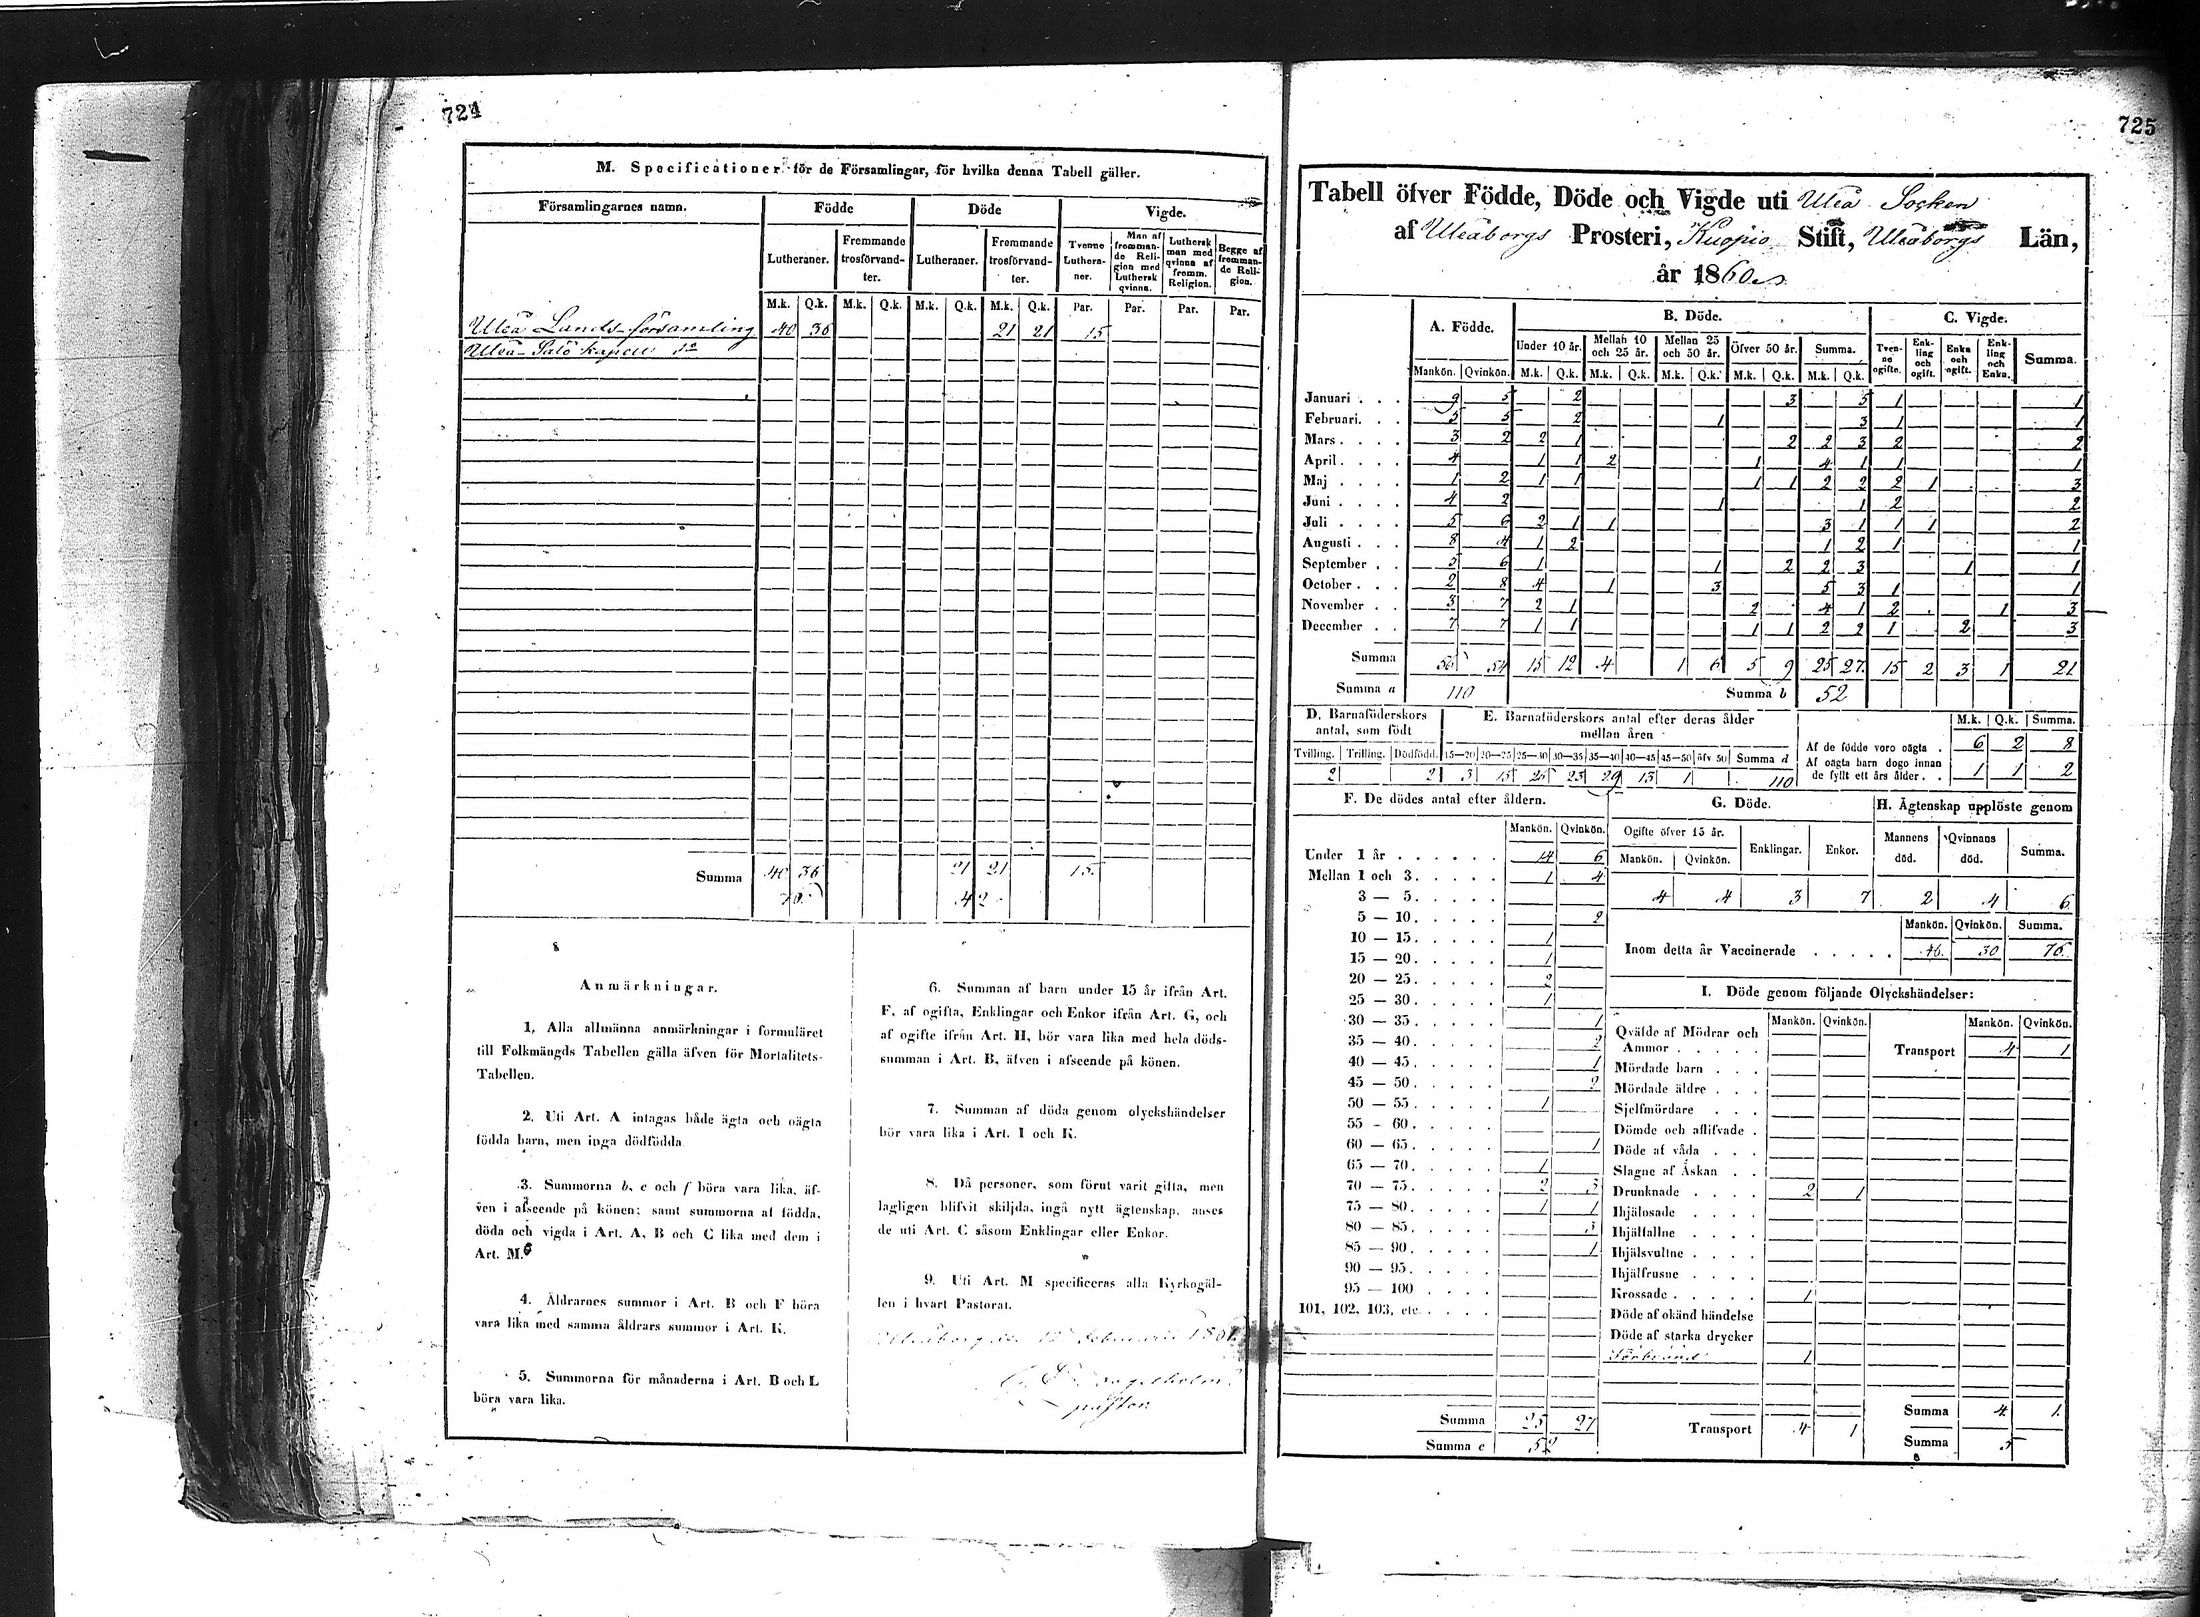 724
M. Specificationer för de Församlingar, för hvilka denna Tabell gäller.
Församlingarnes namn. Födde Döde Vigde.
Lutheraner. Fremmande trosförvandter. Lutheraner. Fremmande trosförvandter. Tvenne Lutheraner. Man af fremmande Religion med Luthersk qvinna. Luthersk man med qvinna af fremm. Religion. Begge af fremmande Religion.
M.k. Q.k. M.k. Q.k. M.k. Q.k. M.k. Q.k. Par. Par. Par. Par.
Uleå Lands-församling 40 36 21 21 15
Uleå-Salo kapell
Summa 40 36 21 21 15.
42
Anmärkningar.
1. Alla allmänna anmärkningar i formuläret
till Folkmängds Tabellen gälla äfven för Mortalitets-
Tabellen.
2. Uti Art. A intagas både ägta och oägta
födda barn, men inga dödfödda
3. Summorna b, c och f böra vara lika, äf-
ven i afseende på könen; samt summorna af födda,
döda och vigda i Art. A, B och C lika med dem i
Art. M.
4. Åldrarnes summor i Art. B och F böra
vara lika med samma åldrars summor i Art. K.
5. Summorna för månaderna i Art. B och L
böra vara lika.
6. Summan af barn under 15 år ifrån Art.
F, af ogifta, Enklingar och Enkor ifrån Art. G, och
af ogifte ifrån Art. H, bör vara lika med hela döds-
summan i Art. B, äfven i afseende på könen.
7. Summan af döda genom olyckshändelser
bör vara lika i Art. I och K.
8. Då personer, som förut varit gifta, men
lagligen blifvit skiljda, ingå nytt ägtenskap, anses
de uti Art. C såsom Enklingar eller Enkor.
9. Uti Art. M specificeras alla Kyrkogäl-
len i hvart Pastorat.
Uleåborg den Februarii 1861.
pastor
725
Tabell öfver Födde, Döde och Vigde uti Uleå Socken
af Uleåborgs Prosteri, Kuopio Stift, Uleåborgs Län,
år 1860
A. Födde. B. Döde. C. Vigde.
Under 10 år. Mellan 10 och 25 år. Mellan 25 och 50 år. Öfver 50 år. Summa. Tvenne ogifte. Enkling och ogift. Enka och ogift. Enkling och Enka. Summa.
Mankön. Qvinkön. M.k. Q.k. M.k. Q.k. M.k. Q.k. M.k. Q.k. M.k. Q.k.
Januari . . . 9 5 2 3 5 1 1
Februari. . . 5 5 2 1 3 1 1
Mars . . . . 3 2 2 1 2 2 3 2 2
April . . . . 4 1 1 2 1 4 1 1 1
Maj . . . . 1 2 1 1 1 1 2 2 2 1 3
Juni . . . . 4 2 1 1 2 2
Juli . . . . 5 6 2 1 1 3 1 1 1 2
Augusti . . . 8 4 1 2 1 2 1 1
September . . 5 6 1 1 2 2 3 1 1
October . . . 2 8 4 1 3 5 3 1 1
November . . 3 7 2 1 2 4 1 2 1 3
December . . 7 7 1 1 1 1 2 2 1 2 3
Summa 56 54 15 12 4 1 6 5 9 25 27 15 2 3 1 21
Summa a 110 Summa b 52
D. Barnaföderskors antal, som födt E. Barnaföderskors antal efter deras ålder mellan åren M.k. Q.k. Summa.
Tvilling. Trilling. Dödfödd. 15—20 20—25 25—30 30—35 35—40 40—45 45—50 öfv 50 Summa d
2 2 3 15 26 23 29 13 1 110
Af de födde voro oägta . 6 2 8
Af oägta barn dogo innan
de fyllt ett års ålder. . 1 1 2
F. De dödes antal efter åldern.
Mankön. Qvinkön.
Under 1 år . . . . . . 14 6
Mellan 1 och 3. . . . . 1 4
3 — 5. . . . .
5 — 10. . . . . 2
10 — 15. . . . . 1
15 — 20. . . . . 1
20 — 25. . . . . 2
25 — 30. . . . . 1
30 — 35. . . . . 1
35 — 40. . . . . 2
40 — 45. . . . . 1
45 — 50. . . . . 2
50 — 55. . . . . 1
55 - 60. . . . .
60 — 65. . . . . 1
65 — 70. . . . . 1
70 — 75. . . . . 2 3
75 — 80. . . . . 1 1
80 — 85. . . . . 3
85 — 90. . . . . 1
90 — 95. . . . .
95 — 100 . . . .
101, 102, 103, etc. . . . .
Summa 25 27
Summa c 52
G. Döde. H. Ägtenskap upplöste genom
Ogifte öfver 15 år. Enklingar. Enkor. Mannens död. Qvinnans död. Summa.
Mankön. Qvinkön.
4 4 3 7 2 4 6
Mankön. Qvinkön. Summa.
Inom detta år Vaccinerade . . . . . 46. 30 76.
I. Döde genom följande Olyckshändelser:
Mankön. Qvinkön. Mankön. Qvinkön.
Qväfde af Mödrar och
Ammor . . . . . Transport 4 1
Mördade barn . . .
Mördade äldre . . .
Sjelfmördare . . .
Dömde och aflifvade .
Döde af våda . . .
Slagne af Åskan . .
Drunknade . . . . 2 1
Ihjälosade . . . .
Ihjälfallne . . . .
Ihjälsvultne . . . .
Ihjälfrusne . . . .
Krossade . . . . . 1
Döde af okänd händelse
Döde af starka drycker
Förbränd 1
Transport 4 1
Summa 4 1.
Summa 5